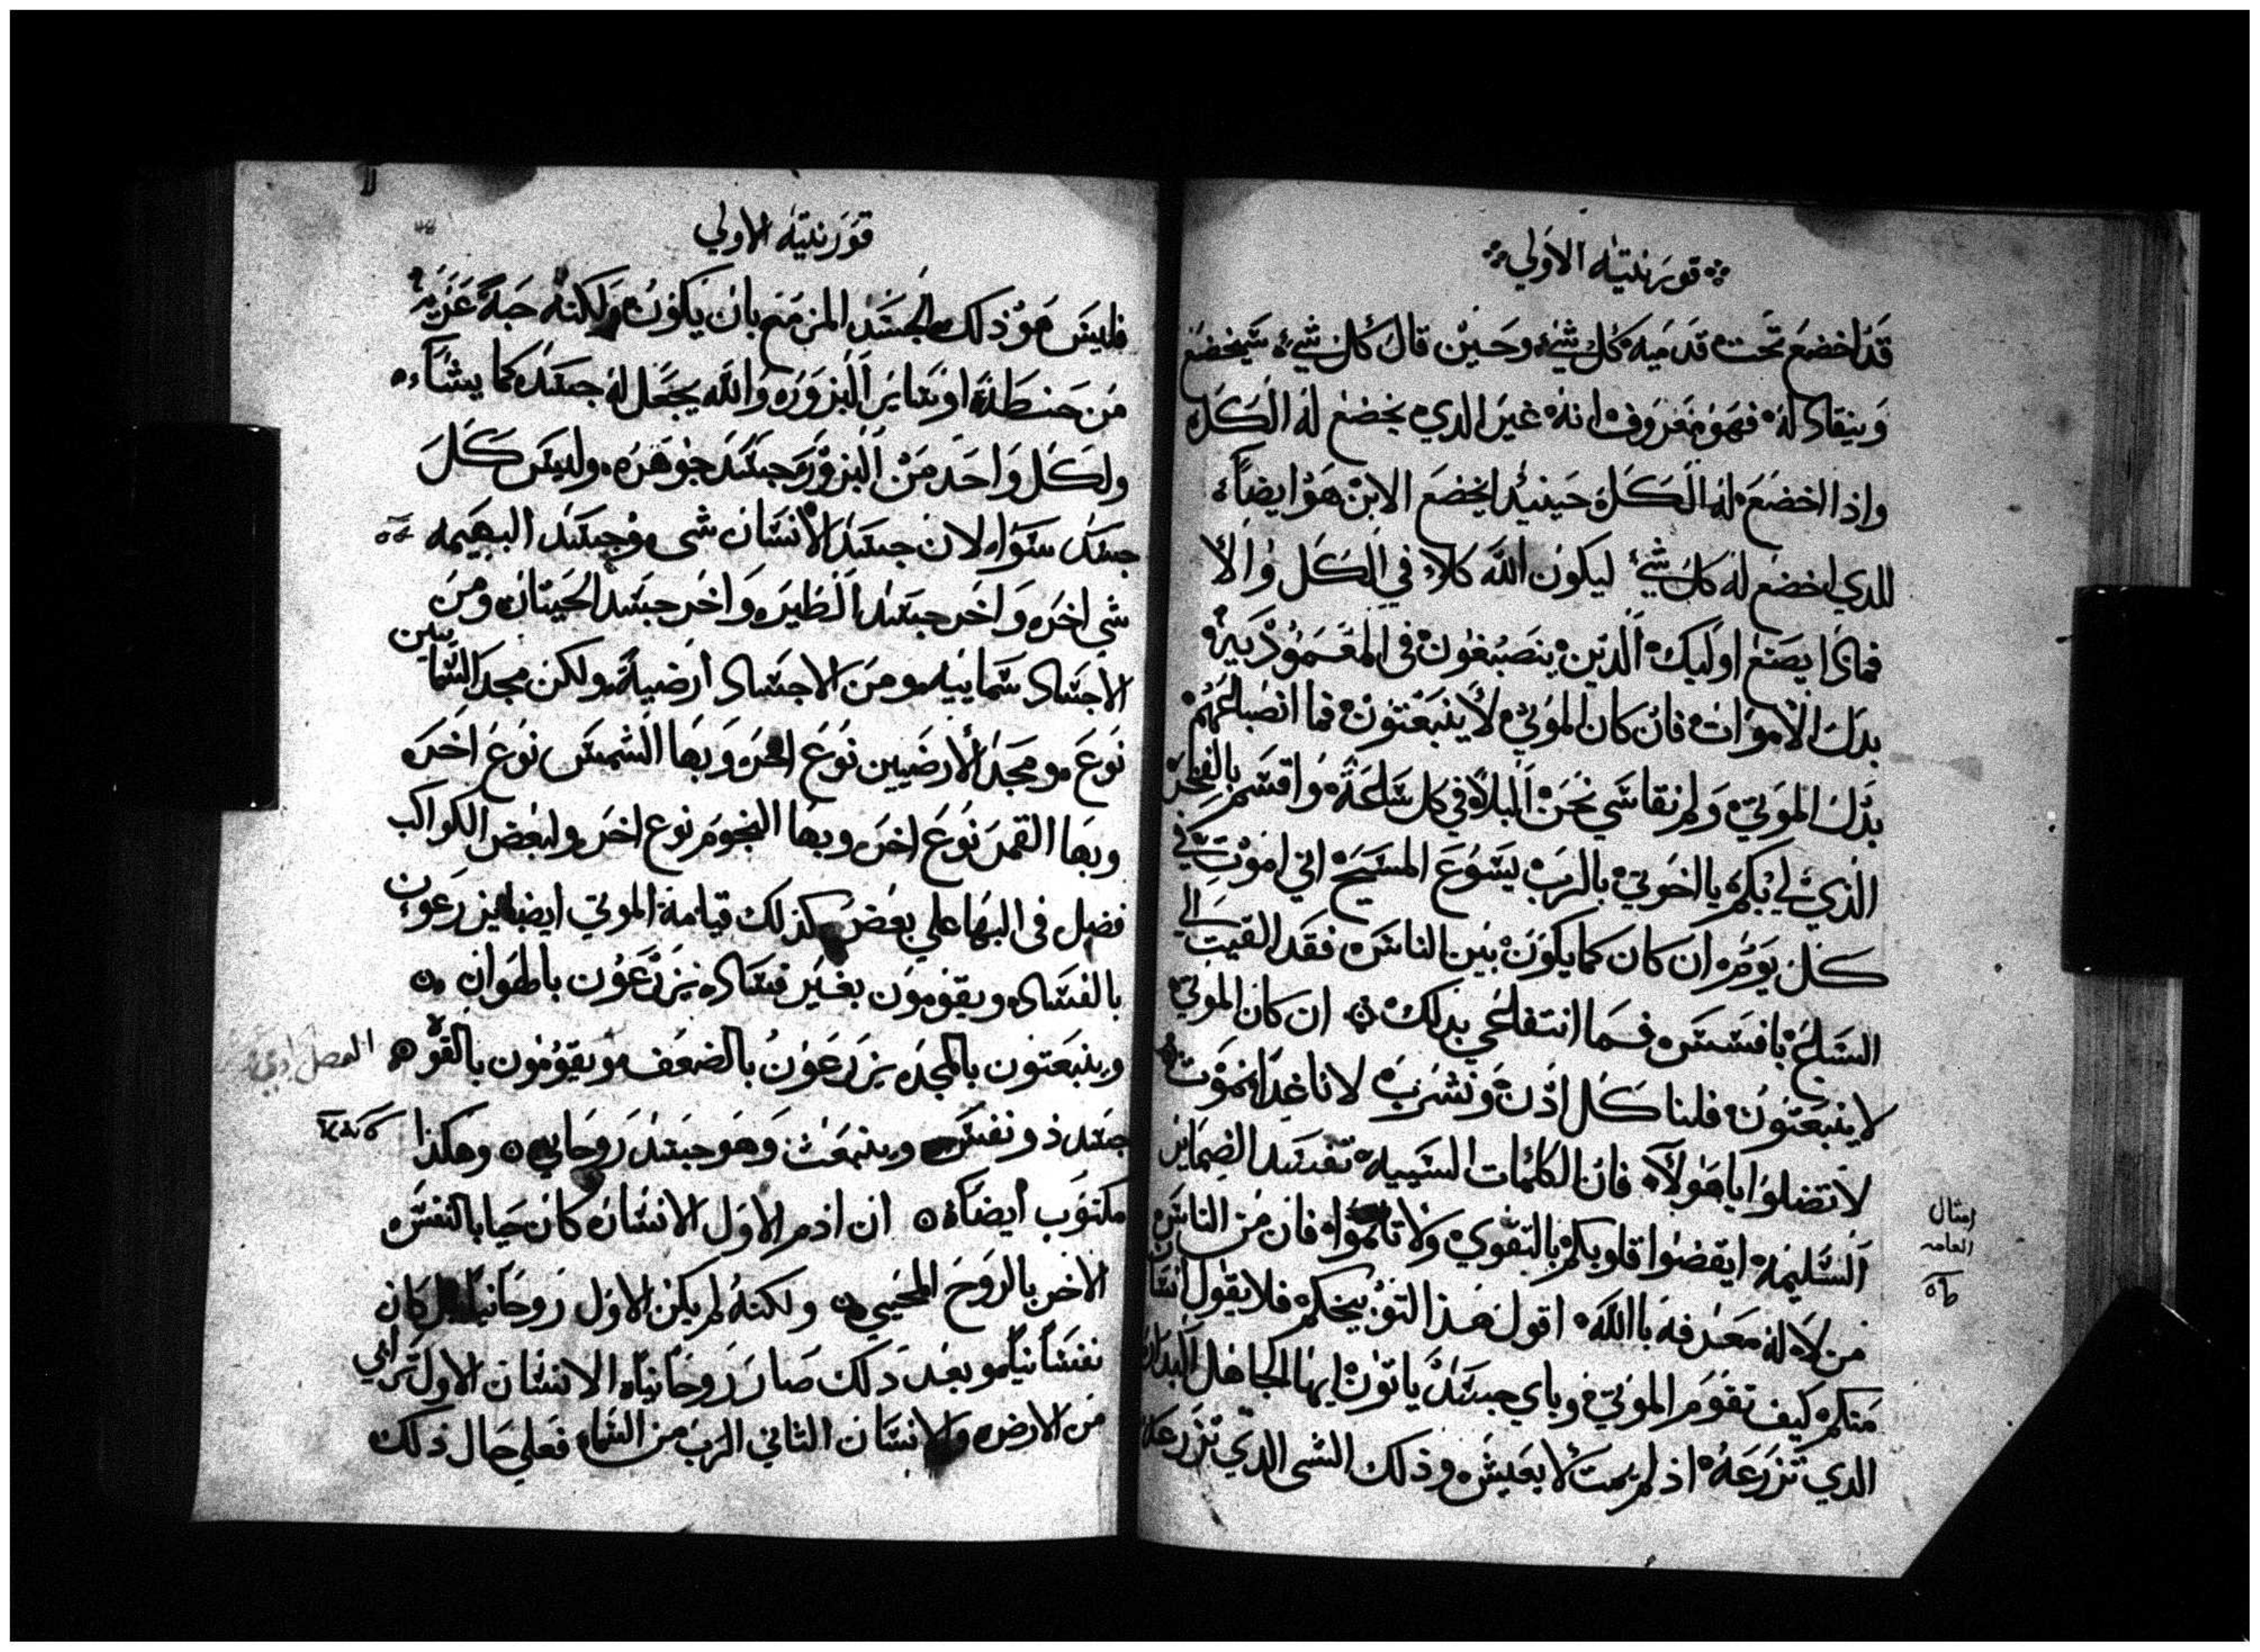 قورنتيه الاولي
قد اخضع تحت قدميه كل شي وحين قال كل شي سيخضع
وينقاد له فهو معروف انه غير الدي يخضع له الكل
واذا اخضع له الكل حينيد يخضع الابن هو ايضاً
للدي اخضع له كل شي ليكون الله كلا في الكل والا
فمادا يصنع اوليك الدين ينصبغون في المعمودية
بدل الاموات فان كان الموتي لا ينبعتون فما انصباغهم
بدل الموتي ولم نقاسي نحن البلا في كل ساعة واقسم بالفخر
الذي لي بكم يا اخوتي بالرب يسوع المسيح اني اموت في
كل يوم ان كان كما يكون بين الناس فقد القيت الي
السباع بافسس فما انتفاعي بدلك ان كان الموتي
لا ينبعتون فلنا كل اذن ونشرب لانا غدا نموت
لا تضلوا يا هولآء فان الكلمات السيية تفسد الضماير
السليمة ايقضوا قلوبكم بالتقوي ولا تاتموا فان من الناس
من لا له معرفة بالله اقول هذا التوبيخكم فلا يقول انسان
منكم كيف تقوم الموتي وباي جسد ياتون ايها الجاهل البدار
الدي تزرعه اذ لم يمت لا يعيش وذلك الشي الدي تزرعه
امثال
العامه
قورنتيه الاولي
فليس هو ذلك الجسد المزمع بان يكون ولكنه حبة عزيه
من حنطة او ساير البزوره والله يجعل له جسد كما يشاء
ولكل واحد من البزور جسد جوهره وليس كل
جسد سواء لان جسد الانسان شي وجسد البهيمه
شي اخر واخر جسد الطير واخر جسد الحيتان ومن
الاجساد سماييه ومن الاجساد ارضية ولكن مجد السماييين
نوع ومجد الارضيين نوع اخر وبها الشمس نوع اخر
وبها القمر نوع اخر وبها النجوم نوع اخر ولبعض الكواكب
فضل في البها علي بعض كذلك قيامة الموتي ايضا يزرعون
بالفساد ويقومون بغير فساد يزرعون بالهوان
وينبعتون بالمجد يزرعون بالضعف ويقومون بالقوه
جسد ذو نفس وينبعث وهو جسد روحاني وهكذا
مكتوب ايضاً ان ادم الاول الانسان كان حيا بالنفس
الاخر بالروح المحيي ولكنه لم يكن الاول روحانيا بل كان
نفسانيا وبعد دلك صار روحانيا الانسان الاول ترابي
من الارض والانسان الثاني الرب من السماء فعلي حال ذلك